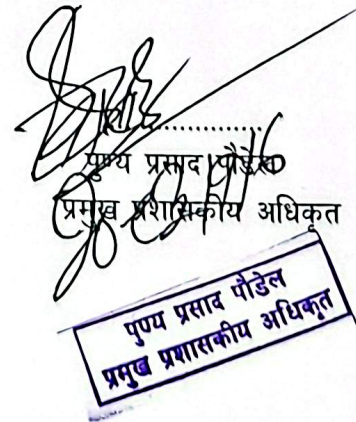 पुण्य प्रसाद पौडेल
प्रमुख प्रशासकीय अधिकृत
पुण्य प्रसाद पौडेल
प्रमुख प्रशासकीय अधिकृत